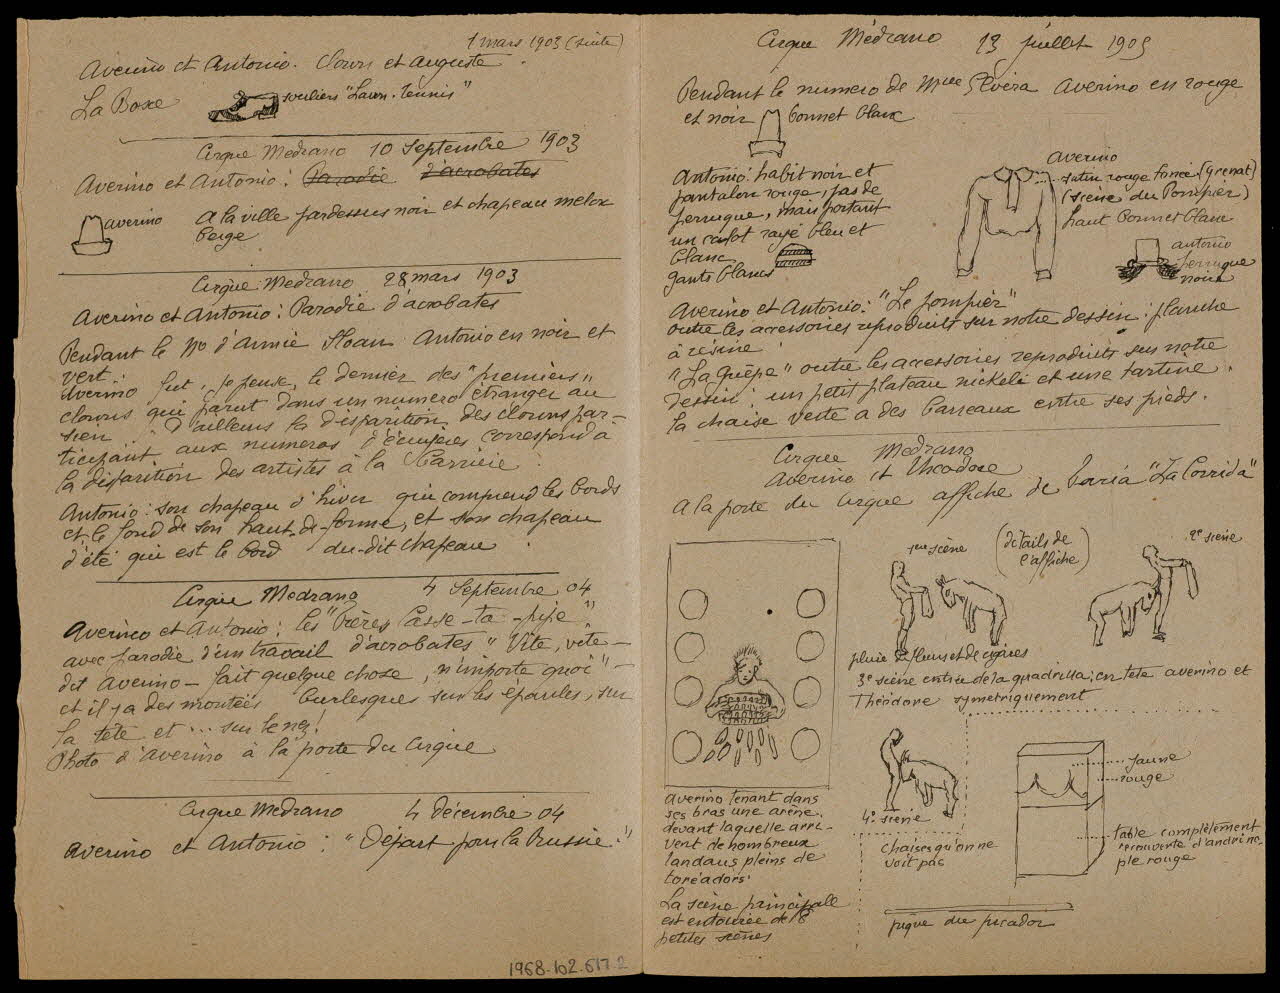 1 mars 1903 (suite)
Averino et Antonio. Clown et auguste.
La Boxe
souliers "Lawn-tennis"
Cirque Medrano 10 Septembre 1903
Averino et Antonio : Parodie d'acrobates
averino
A la ville pardessus noir et chapeau melon
beige
Cirque Medrano 28 mars 1903
Averino et Antonio : Parodie d'acrobates
Pendant le No d'Annie Sloan Antonio en noir et
vert.
Averino fut, je pense, le dernier des "premiers"
clowns qui parut dans un numero étranger au
sien. D'ailleurs la disparition des clowns par-
ticipant aux numeros d'écuyères correspond à
la disparition des artistes à la Barrière.
Antonio : son chapeau d'hiver qui comprend les bords
et le fond de son haut-de-forme, et son chapeau
d'été qui est le bord du-dit chapeau.
Cirque Medrano 4 Septembre 04
Averino et Antonio : les "Frères Casse-ta-pipe"
avec parodie d'un travail d'acrobates "Vite, vite -
dit Averino - fait quelque chose, n'importe quoi" -
et il y a des montées burlesques sur les epaules, sur
la tête et ... sur le nez !
Photo d'Averino à la porte du Cirque
Cirque Medrano 4 Décembre 04
Averino et Antonio : "Départ pour la Russie."
1968-102.617.2
Cirque Médrano 13 juillet 1905
Pendant le numero de Mme Elvira Averino en rouge
et noir bonnet blanc
Antonio : habit noir et
pantalon rouge, pas de
perruque, mais portant
un calot rayé bleu et
blanc
gants blancs
averino
satin rouge foncé (grenat)
(scène du Pompier)
haut bonnet blanc
antonio
perruque
noire
Averino et Antonio : "Le pompier"
outre les accessoires reproduits sur notre dessin : planche
à résine.
"La Guêpe" outre les accessoires reproduits sur notre
dessin : un petit plateau nickelé et une tartine.
la chaise verte a des barreaux entre ses pieds.
Cirque Medrano
Averino et Théodore
A la porte du cirque affiche de "La Corrida"
1ere scène
(détails de
l'affiche)
2e scène
pluie de fleurs et de cigares
3e scène entrée de la quadrilla ; en tête averino et
Théodore symetriquement
4e scène
chaises qu'on ne
voit pas
jaune
rouge
table complètement
recouverte d'andrino-
ple rouge
pique du picador
averino tenant dans
ses bras une arène.
devant laquelle arri-
vent de nombreux
landaus pleins de
toréadors.
La scène principale
est entourée de 8
petites scènes